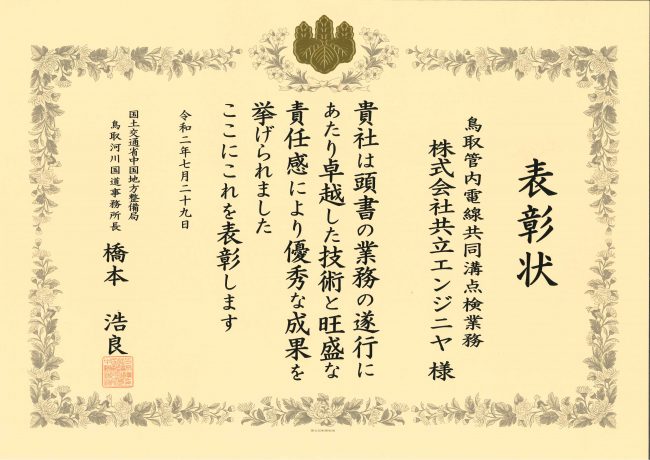 表彰状
鳥取管内電線共同溝点検業務
株式会社共立エンジニヤ 様
貴社は頭書の業務の遂行に
あたり卓越した技術と旺盛な
責任感により優秀な成果を
挙げられました
ここにこれを表彰します
令和二年七月二十九日
国土交通省中国地方整備局
鳥取河川国道事務所長 橋本 浩良